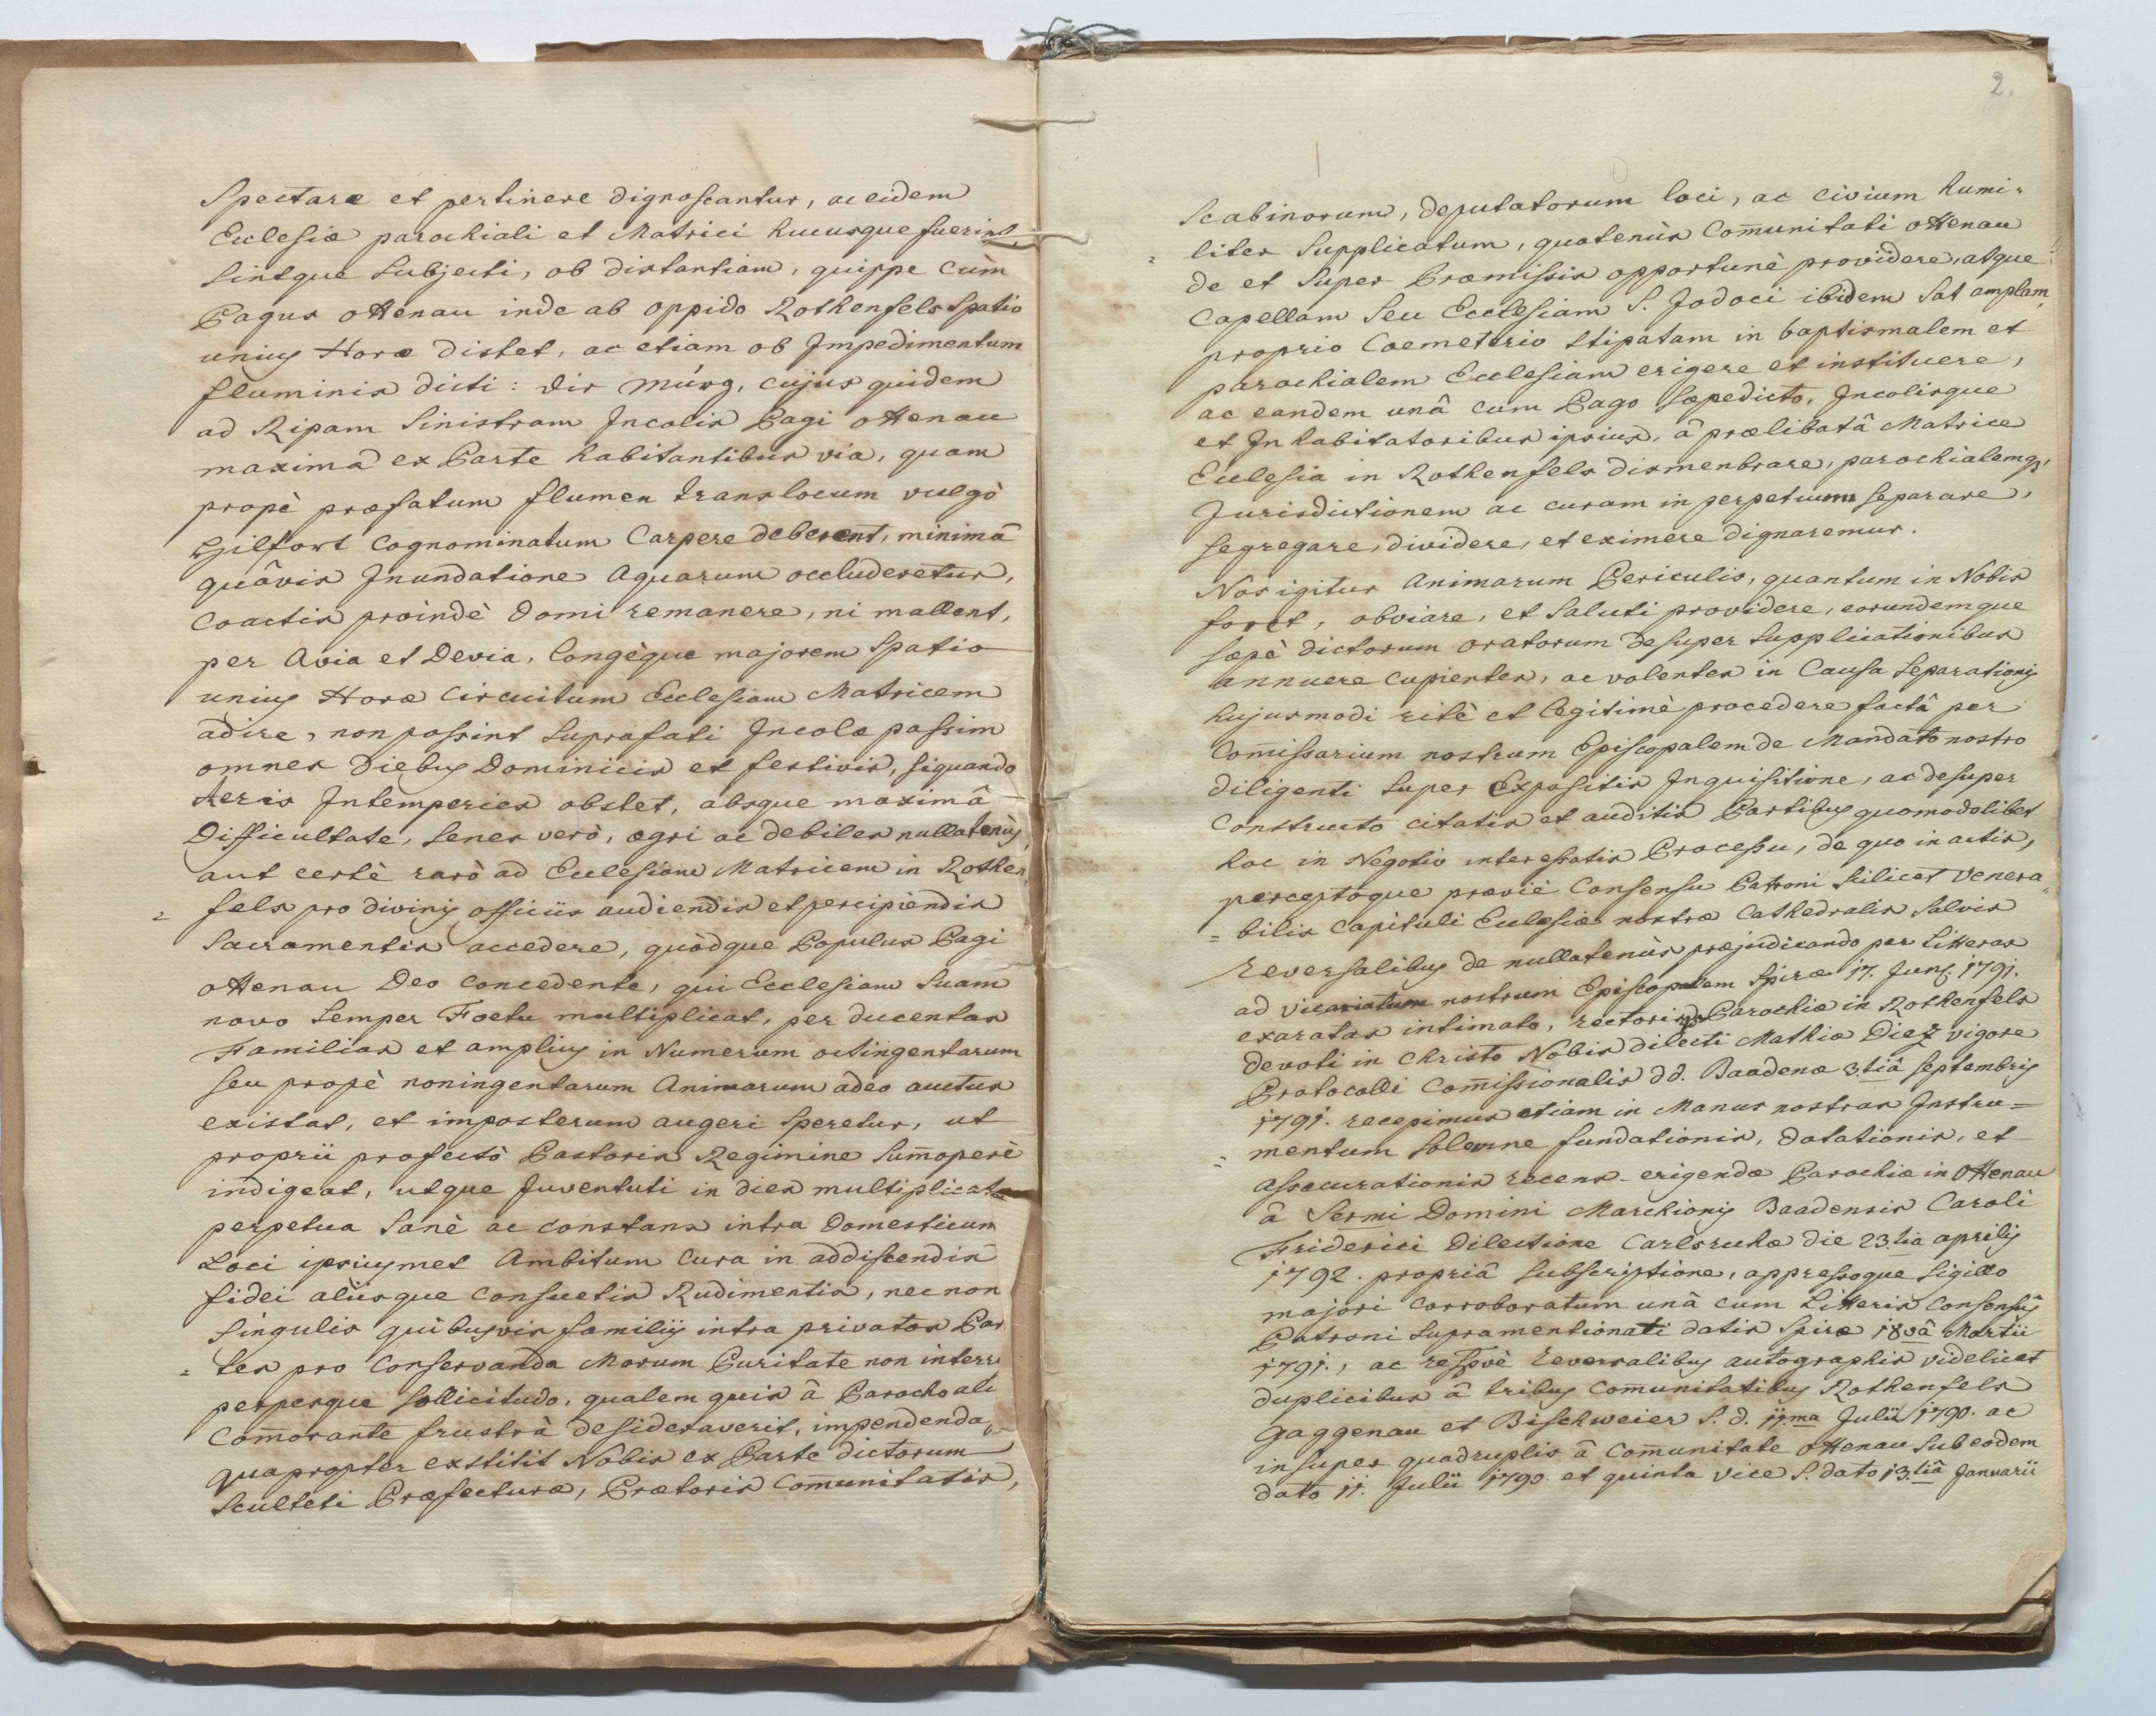 Spectare et pertinere dignoscantur, ac eidem
Ecclesiæ parochiali et Matrici hucusque fuerint,
sintque subjecti, ob distantiam, quippe cùm
Pagus Ottenau inde ab oppido Rothenfels spatio
unius Horæ distet, ac etiam ob Impedimentum
fluminis dicti: die Mürg, cujus quidem
ad Ripam sinistram Incolis Pagi Ottenau
maximâ ex Parte habitantibus via, quam
propè præfatum flumen trans locum vulgò
Hilfort cognominatum carpere deberent, minimâ
quâvis Inundatione aquarum occluderetur,
coactis proindè domi remanere, ni mallent,
per avia et devia, longèque majorem spatio
unius Horæ circuitum Ecclesiam Matricem
adire, non possint suprafati Incolæ passim
omnes diebus Dominicis et festivis, siquando
aeris Intemperies obstet, absque maximâ
Difficultate, senes verò, ægri ac debiles nullatenùs,
aut certè rarò ad Ecclesiam Matricem in Rothen
= fels pro divinis officiis audiendis et percipiendis
Sacramentis accedere, quòdque Populus Pagi
Ottenau Deo concedente, qui Ecclesiam suam
novo semper Foetu multiplicat, per ducentas
Familias et amplius in Numerum octingentarum
seu propè noningentarum Animarum adeo auctus
existat, et imposterum augeri speretur, ut
proprii profectò Pastoris Regimine sum̄operè
indigeat, utque Juventuti in dies multiplicatæ
perpetua sanè ac constans intra Domesticum
Loci ipsiusmet Ambitum cura in addiscendis
fidei aliisque consuetis Rudimentis, nec non
singulis quibusvis familiis intra privatos Par
= tes pro conservanda Morum Puritate non interr
perpesque sollicitudo, qualem quis â Parocho ali
com̄orante frustrà desideraverit, impendenda,
quapropter exstitit Nobis ex Parte dictorum
Sculteti Præfecturæ, Prætoris Com̄unitatis,
2.
Scabinorum, deputatorum loci, ac civium humi=
= liter supplicatum, quatenùs Com̄unitati Ottenau
de et super Præmissis opportunè providere, atque
Capellam seu Ecclesiam S. Jodoci ibidem sat amplam,
proprio Coemeterio stipatam in baptismalem et
parochialem Ecclesiam erigere et instituere,
ac eandem unâ cum Pago sæpedicto, Incolisque
et Inhabitatoribus ipsius, â prælibatâ Matrice
Ecclesia in Rothenfels dismenbrare, parochialemq3,
Jurisdictionem ac curam in perpetuum separare,
segregare, dividere, et eximere dignaremur.
Nos igitur Animarum Periculis, quantum in Nobis
foret, obviare, et saluti providere, eorundemque
sæpè dictorum oratorum desuper supplicationibus
annuere cupientes, ac volentes in Causa separationis
hujusmodi ritè et legitimè procedere factâ per
Com̄issarium nostrum Episcopalem de Mandato nostro
diligenti super Expositis Inquisitione, ac desuper
constructo citatis et auditis Partibus quomodolibet
hoc in Negotio interessatis Processu, de quo in actis,
perceptoque præviè Consensu Patroni scilicet Venera
= bilis Capituli Ecclesiæ nostræ Cathedralis salvis
reversalibus de nullatenùs præjudicando per Litteras
ad Vicariatum nostrum Episcopalem Spiræ 17. Junj. 1791.
exaratas intimato, rectorisq3 Parochiæ in Rothenfels
devoti in Christo Nobis dilecti Mathiæ Diez vigore
Protocolli Com̄issionalis dd. Baadenæ 3.tiâ septembris
1791. recepimus etiam in Manus nostras Instru=
= mentum solemne fundationis, dotationis, et
assecurationis recens-erigendæ Parochiæ in Ottenau
â Sermi Domini Marchionis Baadensis Caroli
Friderici Dilectione Carlsruhæ die 23.tia aprilis
1792. propriâ subscriptione, appressoque sigillo
majori corroboratum unâ cum Litteris Consensûs
Patroni supramentionati datis Spiræ 18vâ Martii
1791., ac respvè reversalibus autographis videlicet
duplicibus â tribus Com̄unitatibus Rothenfels
Gaggenau et Bischweier S. d. 11.ma Julii 1790. ac
insuper quadruplis â Com̄unitate Ottenau sub eodem
dato 11. Julii 1790. et quinta vice S. dato 13.tiâ Januarii